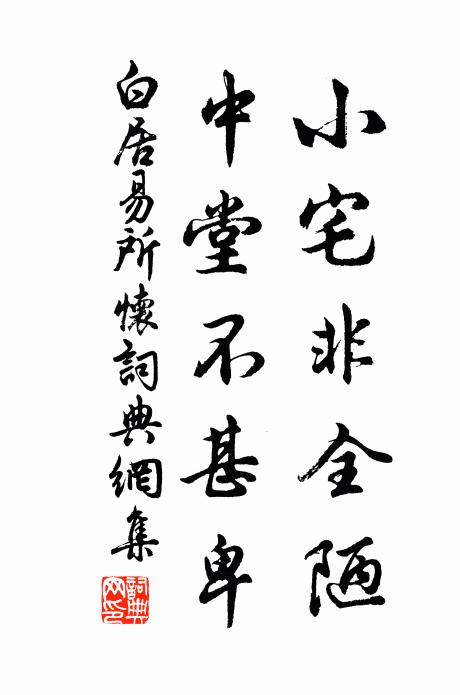 小宅非全陋
中堂不甚卑
白居易所懷詞典網集
詞典網印